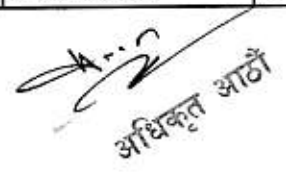 अधिकृत आठौं